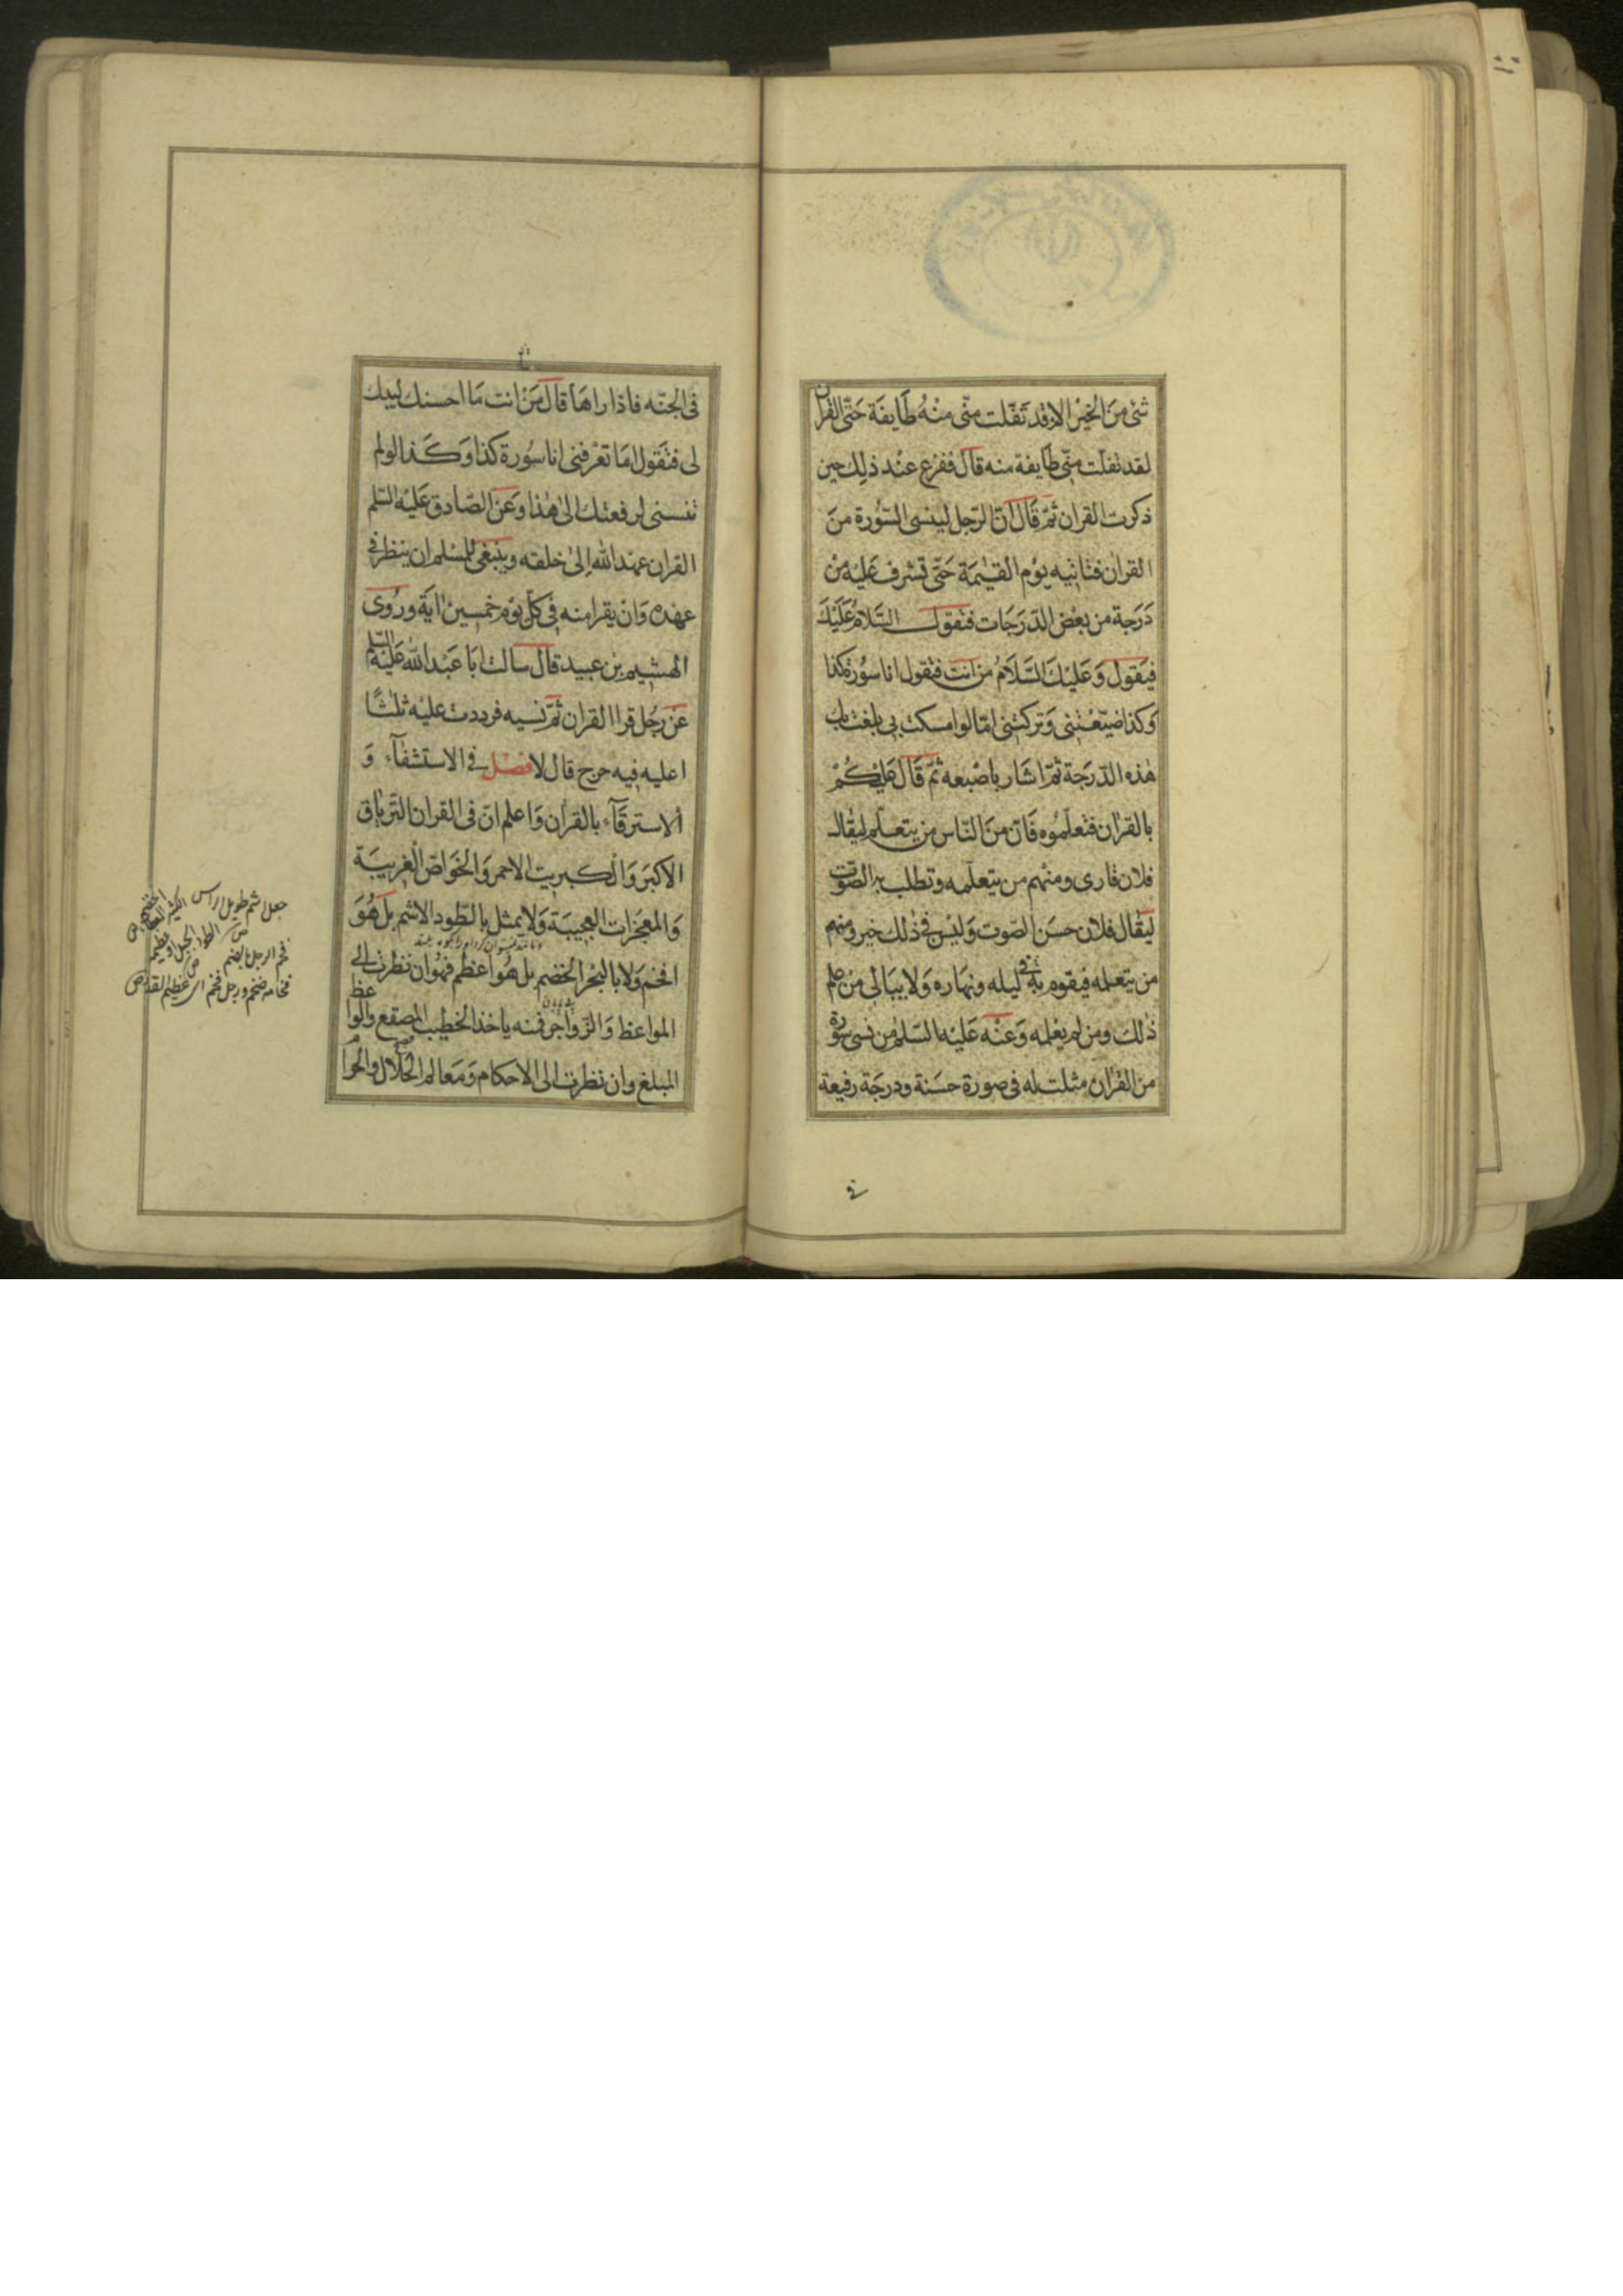 شئ مِنَ الخَيْر الا وَقد تَفَلّت مِنّى مِنْهُ طَايفَة حَتّى القران
لقد تفلت مِنّى طَايفة منه قالَ ففزع عنْد ذلِك حين
ذكرت القران ثمّ قَالَ انّ الرّجل لينسى السّورة من
القران فتاتيه يوْم القيٰمَة حَتّى تشرف عَليْه من
دَرَجة من بعْض الدّرَجَات فتقول السّلامُ عَلَيْكَ
فيَقول وَعَليْكَ السّلَامُ من انت فتقول انا سُورة كذا
وَكذا ضيّعْتنى وَتركتنى امّا لو امسكت بى بلغت بك
هٰذه الدّرَجة ثمّ اشَار باصْبعه ثمّ قالَ عَليْكُمْ
بالقرْان فتعلّموُه فَانّ منَ النّاس من يتعلّم ليقال
فلان قارى ومنهم من يتعلّمه وتطلب به الصّوت
ليقال فلان حسَن الصّوت وَليْسَ فى ذٰلك خير ومنهم
من يتعلمه فيقوم به فى ليله ونهاره وَلا يبَالى مَنْ علم
ذٰلك ومن لم يعْلمه وَعنْه عَليْه السّلم من نسى سورة
من القرْان مثلت له فى صورة حسَنة ودرجَة رفيعة
فى
فى الجنّه فاذا راهَا قال مَنْ انت مَا احسنك ليتك
لى فتقول امَا تعْرفنى انا سُورة كذا وَكَذا لو لم
تنسنى لرفعتك الى هٰذا وَعَن الصّادق عَليْه السّلم
القران عهد الله الى خلقه وينبغى للمسْلم ان ينظر فى
عهْده وَانْ يقرا منه فى كلّ يوْم خمسين اية وروُى
الهشيم بن عبيد قال سالت ابَا عَبْد الله عَليْه السّلم
عَنْ رجُل قرا القران ثمّ نسيه فرددت عليْه ثلٰثًا
اعليه فيه حرج قال لا فصْل فى الاستشفآء وَ
الاسترقَآء بالقرٰان وَاعلم انّ فى القران التّرياق
الاكبَر وَالكبريت الاحمر وَالخَوَاصّ الغريبَة
وَالمعجَزات العجيبَة وَلا يمثل بالطّود الاشم بَل هُوَ
افخم وَلا بالبَحْر الخضم بل هُوَ اعظم فهْو ان نظرت الى
المواعظ وَالزّواجر فمنه ياخذ الخطيب المصقع والواعظ
المبلغ وان نظرت الى الاحكام وَمَعالم الحَلال والحرام
جبل اشم طويل الراس
الطود الجبل او عظيمه
فخم الرجل بالضم
فخامه ضخم ورجل فخم اى عظيم القدر ص